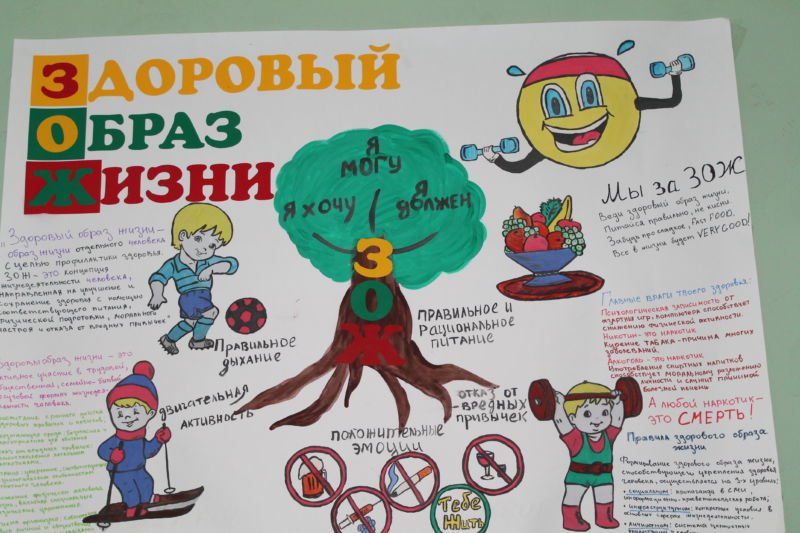 ЗДОРОВЫЙ
ОБРАЗ
ЖИЗНИ
Я
МОГУ
Я ХОЧУ
Я
ДОЛЖЕН
ЗОЖ
Мы за ЗОЖ
Веди здоровый образ жизни,
Питайся правильно, не кисни.
Забудь про сладкое, FAST FOOD.
Все в жизни будет VERY GOOD!
"Здоровый образ жизни-
образ жизни отдельного человека
с целью профилактики здоровья.
ЗОЖ - это концепция
жизнедеятельности человека,
направленная на улучшение и
сохранение здоровья с помощью
соответствующего питания,
физической подготовки, морального
настроя и отказа от вредных привычек"
Правильное
дыхание
правильное и
рациональное
питание
двигательная
активность
отказ от
вредных
привычек
положительные
эмоции
Тебе
жить
Главные враги твоего здоровья:
Психологическая зависимость от
азартных игр, компьютера способствует
снижению физической активности.
Никотин - это наркотик
Курение ТАБАКА - причина многих
заболеваний.
Алкоголь - это наркотик
Употребление спиртных напитков
способствует моральному разложению
личности и станит причиной
болезней печени
А любой наркотик-
это СМЕРТЬ!
Правила здорового образа
жизни
Формирование здорового образа жизни,
способствующего укреплению здоровья
человека, осуществляется на 3-х уровнях:
• социальном: пропаганда в СМИ,
информационно-просветительская работа;
• инфраструктурном: конкретные условия в
основных сферах жизнедеятельности
• личностном: система ценностных
Здоровый образ жизни - это
активное участие в трудовой,
общественной, семейно-бытовой,
досуговой формах жизнедея-
тельности человека.